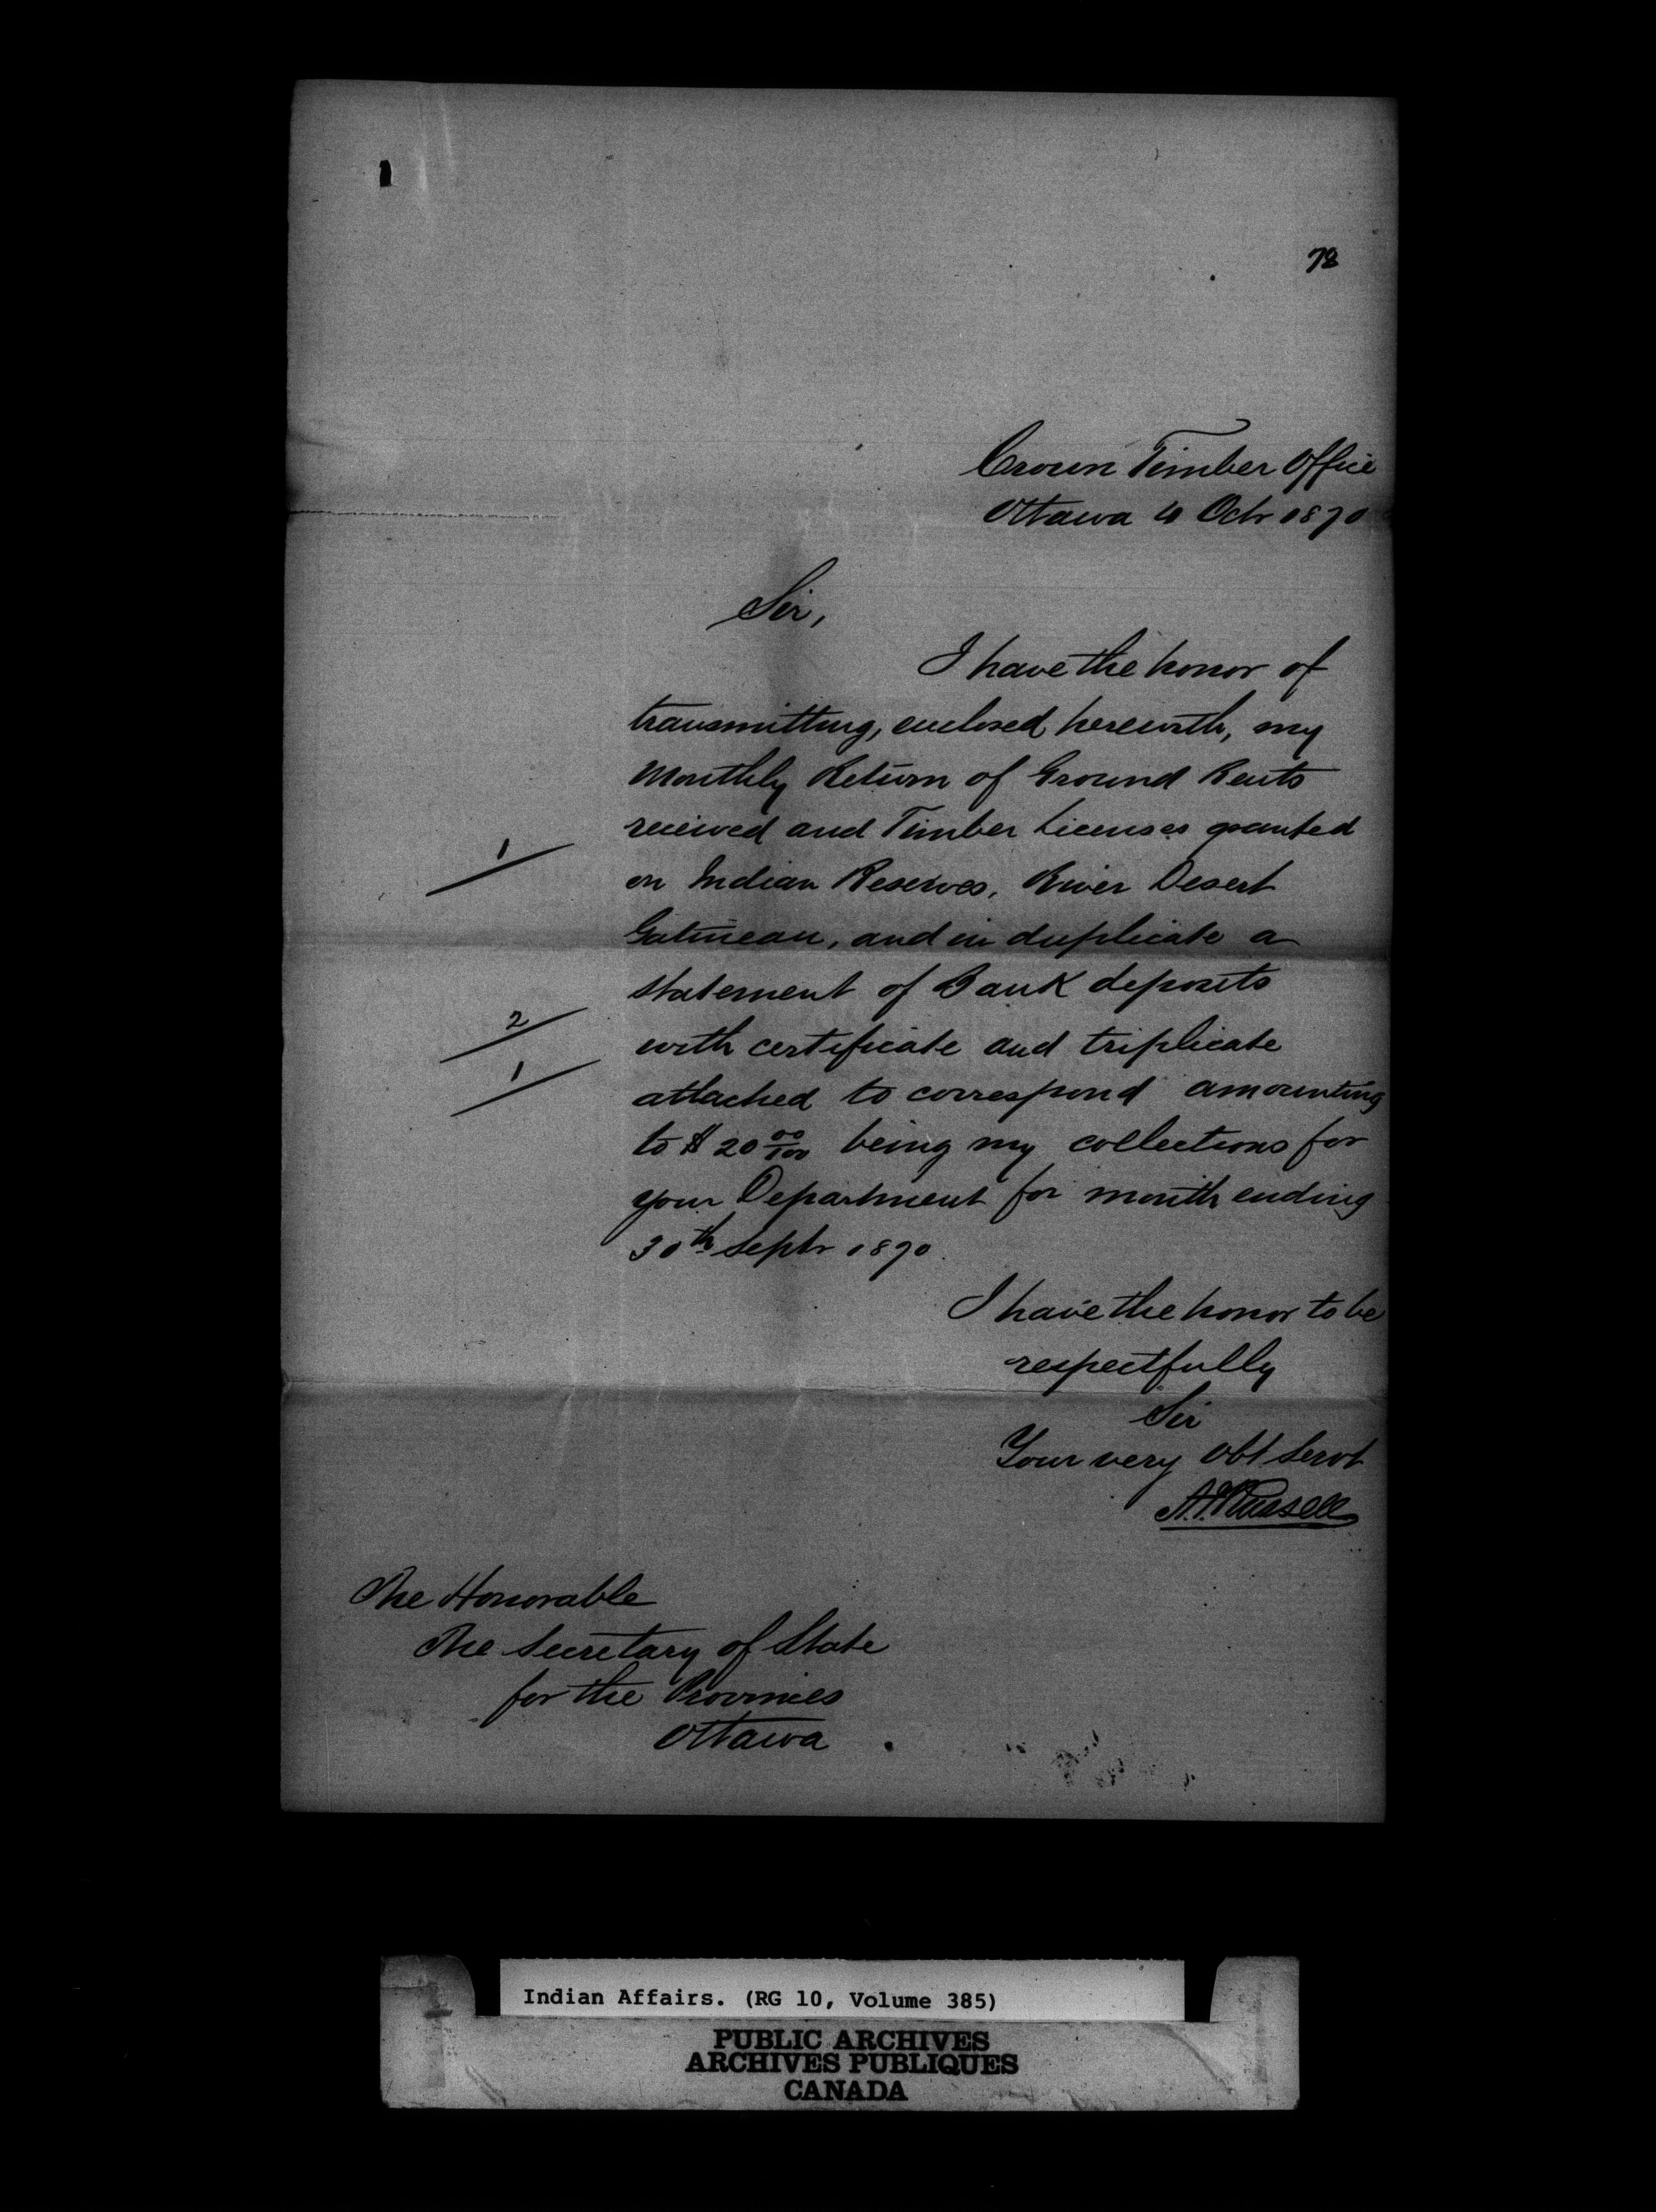 78
Crown Timber Office
Ottawa 4 Octr 1870
Sir,
I have the honor of
transmitting, enclosed herewith, my
Monthly Return of Ground Rents
received and Timber Licenses granted
1
on Indian Reserves, River Desert
Gatineau, and in duplicate a
statement of Bank deposits
2
with certificate and triplicate
1
attached to correspond amounting
to $ 20 00/100 being my collections for
your Department for month ending
30th Septr 1870.
I have the honor to be
respectfully
Sir
Your very Obt Servt
A. J. Russell
The Honorable
The Secretary of State
for the Provinces
Ottawa
Indian Affairs. (RG 10, Volume 385)
PUBLIC ARCHIVES
ARCHIVES PUBLIQUES
CANADA